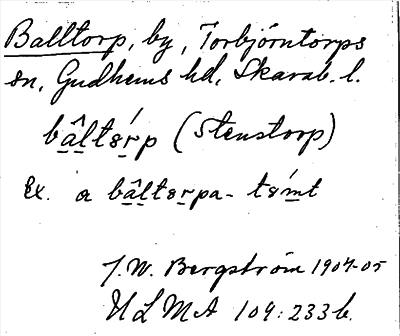 Balltorp, by, Torbjörntorps
sn, Gudhems hd, Skarab. l.
bâltørp (Stenstorp)
Ex. a bâltørpa- tømt
J.W. Bergström 1904-05
ULMA 104:233b.